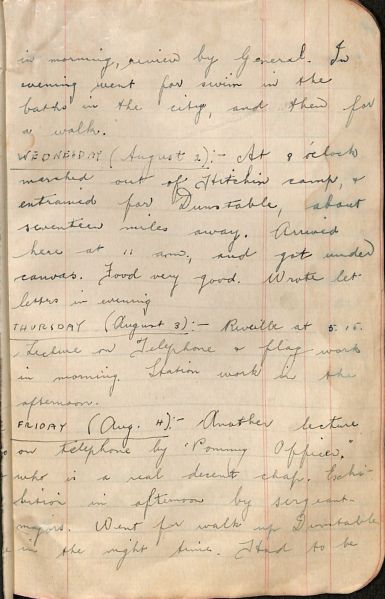 in morning, review by General. In
evening went for swim in the
baths in the city, and then for
a walk.
WEDNESDAY (August 2):- At 8 o'clock
marched out of Hitchin camp, &
entrained for Dunstable, about
seventeen miles away. Arrived
here at 11 am, and got under
canvas. Food very good. Wrote let
letters in evening
THURSDAY (August 3):- Reveille at 5.15.
Lecture on Telephone & flag work
in morning. Station work in the
afternoon.
FRIDAY (Aug. 4):- Another lecture
on telephone by "Pommy Officer,"
who is a real decent chap. Exhi-
bition in afternoon by sergeant-
majors. Went for walk up Dunstable
in the night time. Had to be